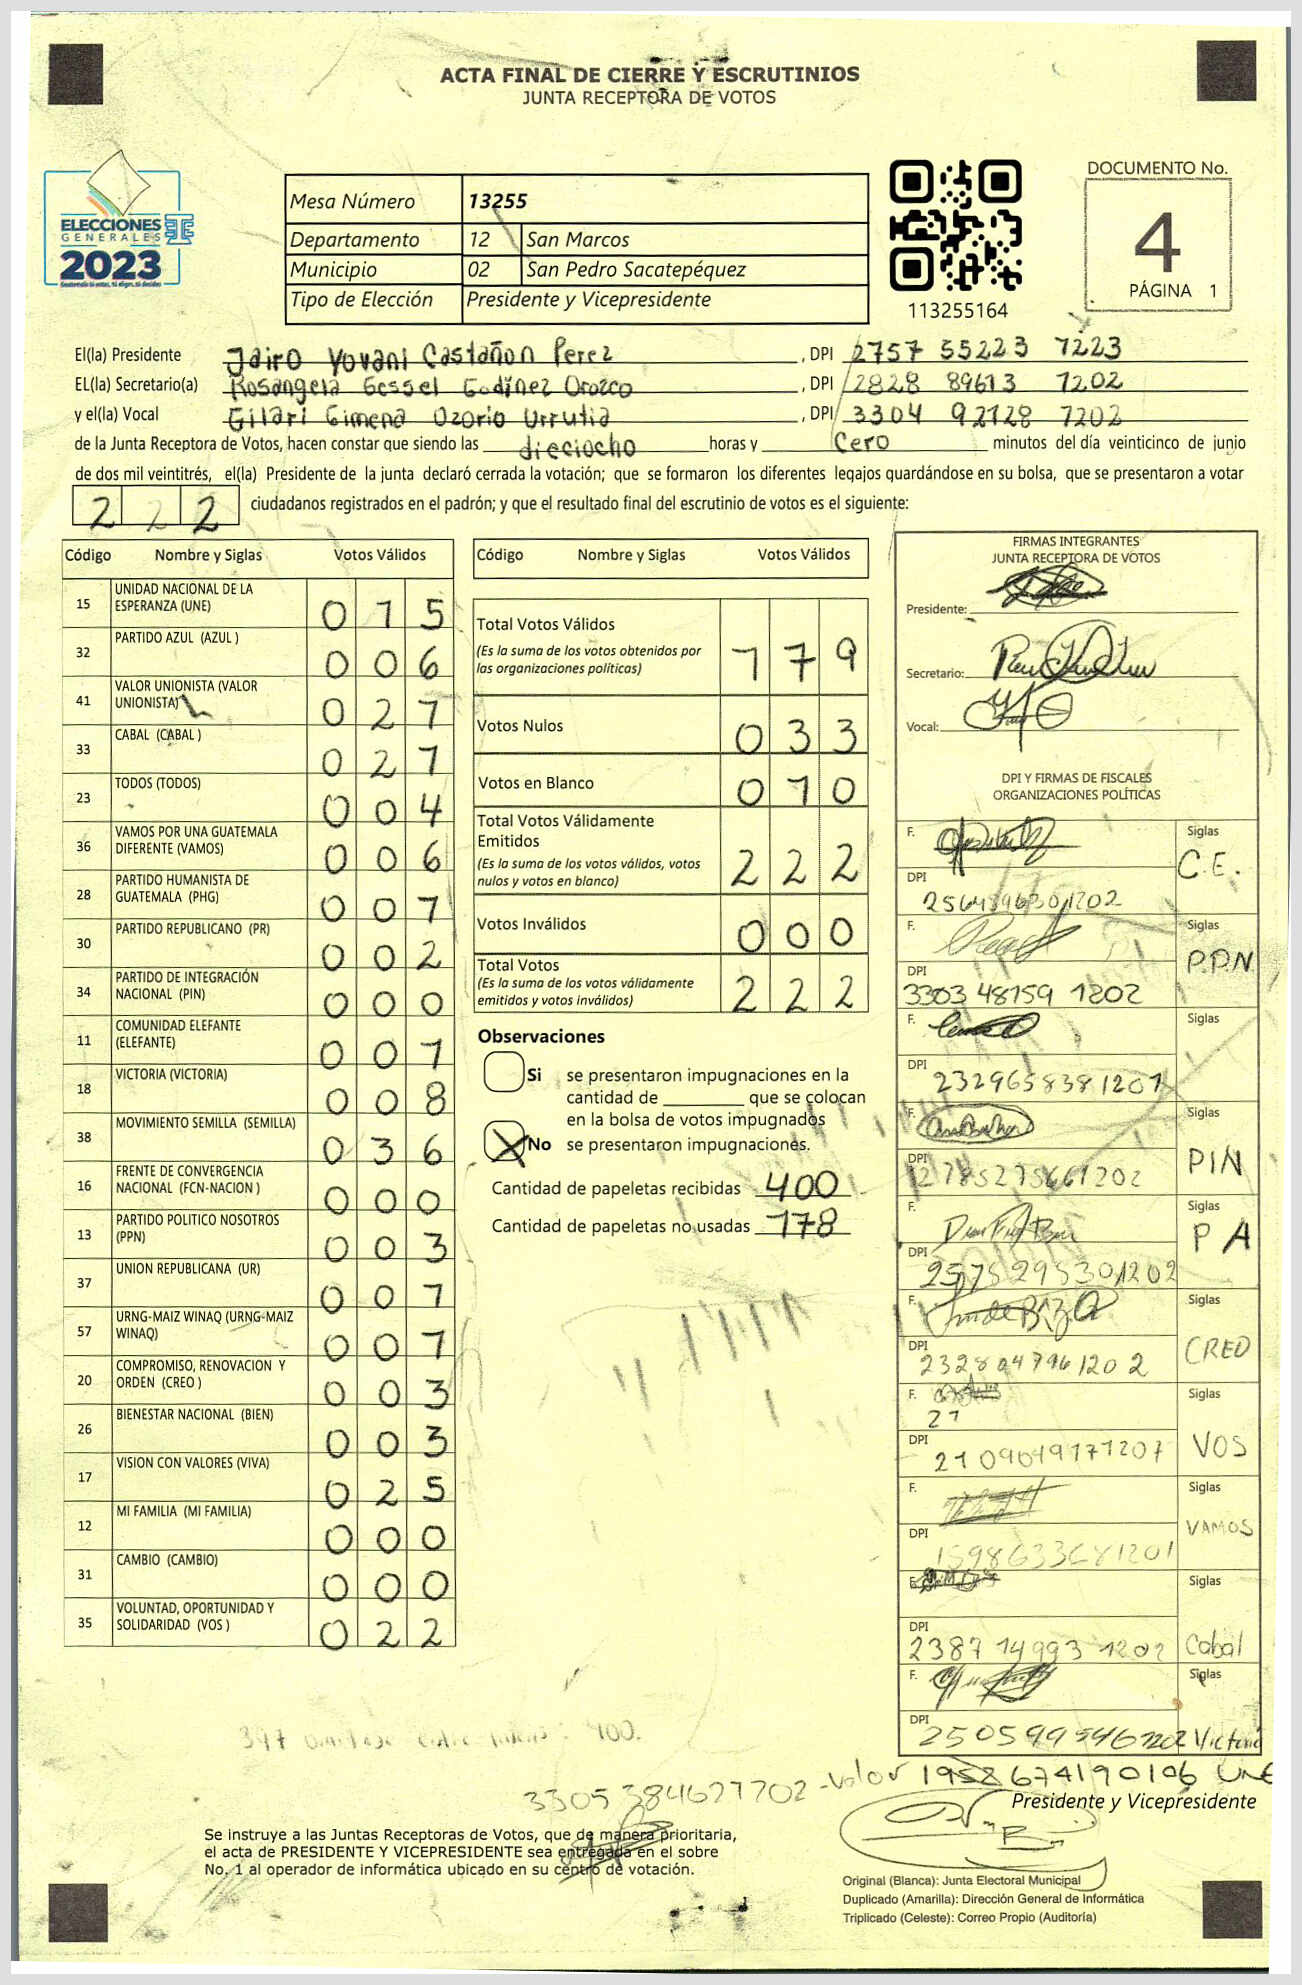 ACTA FINAL DE CIERRE Y ESCRUTINIOS
JUNTA RECEPTORA DE VOTOS
ELECCIONES
GENERALES
2023
Mesa Número 13255
Departamento 12 San Marcos
Municipio 02 San Pedro Sacatepéquez
Tipo de Elección Presidente y Vicepresidente
113255164
DOCUMENTO No.
4
PÁGINA 1
El(la) Presidente Jairo Yovani Castañon Perez, DPI 55223 1223
EL(la) Secretario(a) Rosangela Gessel Godínez Orozco, DPI 2828 89613 1202
y el(la) Vocal Gilari Gimena Ozorio Urrutia, DPI 3304 92128 1202
de la Junta Receptora de Votos, hacen constar que siendo las dieciocho horas y Cero minutos del día veinticinco de junio
de dos mil veintitrés, el(la) Presidente de la junta declaró cerrada la votación; que se formaron los diferentes legajos quardándose en su bolsa, que se presentaron a votar
222 ciudadanos registrados en el padrón; y que el resultado final del escrutinio de votos es el siguiente:
Código Nombre y Siglas Votos Válidos
15 UNIDAD NACIONAL DE LA ESPERANZA (UNE) 015
32 PARTIDO AZUL (AZUL ) 006
41 VALOR UNIONISTA (VALOR UNIONISTA) 021
33 CABAL (CABAL ) 021
23 TODOS (TODOS) 004
36 VAMOS POR UNA GUATEMALA DIFERENTE (VAMOS) 006
28 PARTIDO HUMANISTA DE GUATEMALA (PHG) 001
30 PARTIDO REPUBLICANO (PR) 002
34 PARTIDO DE INTEGRACIÓN NACIONAL (PIN) 000
11 COMUNIDAD ELEFANTE (ELEFANTE) 001
18 VICTORIA (VICTORIA) 008
38 MOVIMIENTO SEMILLA (SEMILLA) 036
16 FRENTE DE CONVERGENCIA NACIONAL (FCN-NACION ) 000
13 PARTIDO POLITICO NOSOTROS (PPN) 003
37 UNION REPUBLICANA (UR) 001
57 URNG-MAIZ WINAQ (URNG-MAIZ WINAQ) 001
20 COMPROMISO, RENOVACION Y ORDEN (CREO ) 003
26 BIENESTAR NACIONAL (BIEN) 003
17 VISION CON VALORES (VIVA) 025
12 MI FAMILIA (MI FAMILIA) 000
31 CAMBIO (CAMBIO) 000
35 VOLUNTAD, OPORTUNIDAD Y SOLIDARIDAD (VOS ) 022
Código Nombre y Siglas Votos Válidos
Total Votos Válidos 179
(Es la suma de los votos obtenidos por
las organizaciones políticas)
Votos Nulos 033
Votos en Blanco 010
Total Votos Válidamente
Emitidos 222
(Es la suma de los votos válidos, votos
nulos y votos en blanco)
Votos Inválidos 000
Total Votos 222
(Es la suma de los votos válidamente
emitidos y votos inválidos)
Observaciones
Si se presentaron impugnaciones en la
cantidad de ________ que se colocan
en la bolsa de votos impugnados
X No se presentaron impugnaciones.
Cantidad de papeletas recibidas 400
Cantidad de papeletas no usadas 178
FIRMAS INTEGRANTES
JUNTA RECEPTORA DE VOTOS
Presidente:
Secretario:
Vocal:
DPI Y FIRMAS DE FISCALES
ORGANIZACIONES POLÍTICAS
F. Siglas C.E.
DPI
F. Siglas P.P.N
DPI 3303 48159 1202
F. Siglas
DPI 2329658381201
F. Siglas PIN
DPI 2785275661202
F. Siglas PA
DPI 2575295301202
F. Siglas CREO
DPI 2328047961202
F. Siglas VOS
21
DPI
F. Siglas VAMOS
DPI 1598633681201
F. Siglas Cabal
DPI 2387 14993 1202
F. Siglas Victoria
DPI
400.
Valor 1958674190106 UNE
Presidente y Vicepresidente
Se instruye a las Juntas Receptoras de Votos, que de manera prioritaria,
el acta de PRESIDENTE Y VICEPRESIDENTE sea entregada en el sobre
No. 1 al operador de informática ubicado en su centro de votación.
Original (Blanca): Junta Electoral Municipal
Duplicado (Amarilla): Dirección General de Informática
Triplicado (Celeste): Correo Propio (Auditoría)